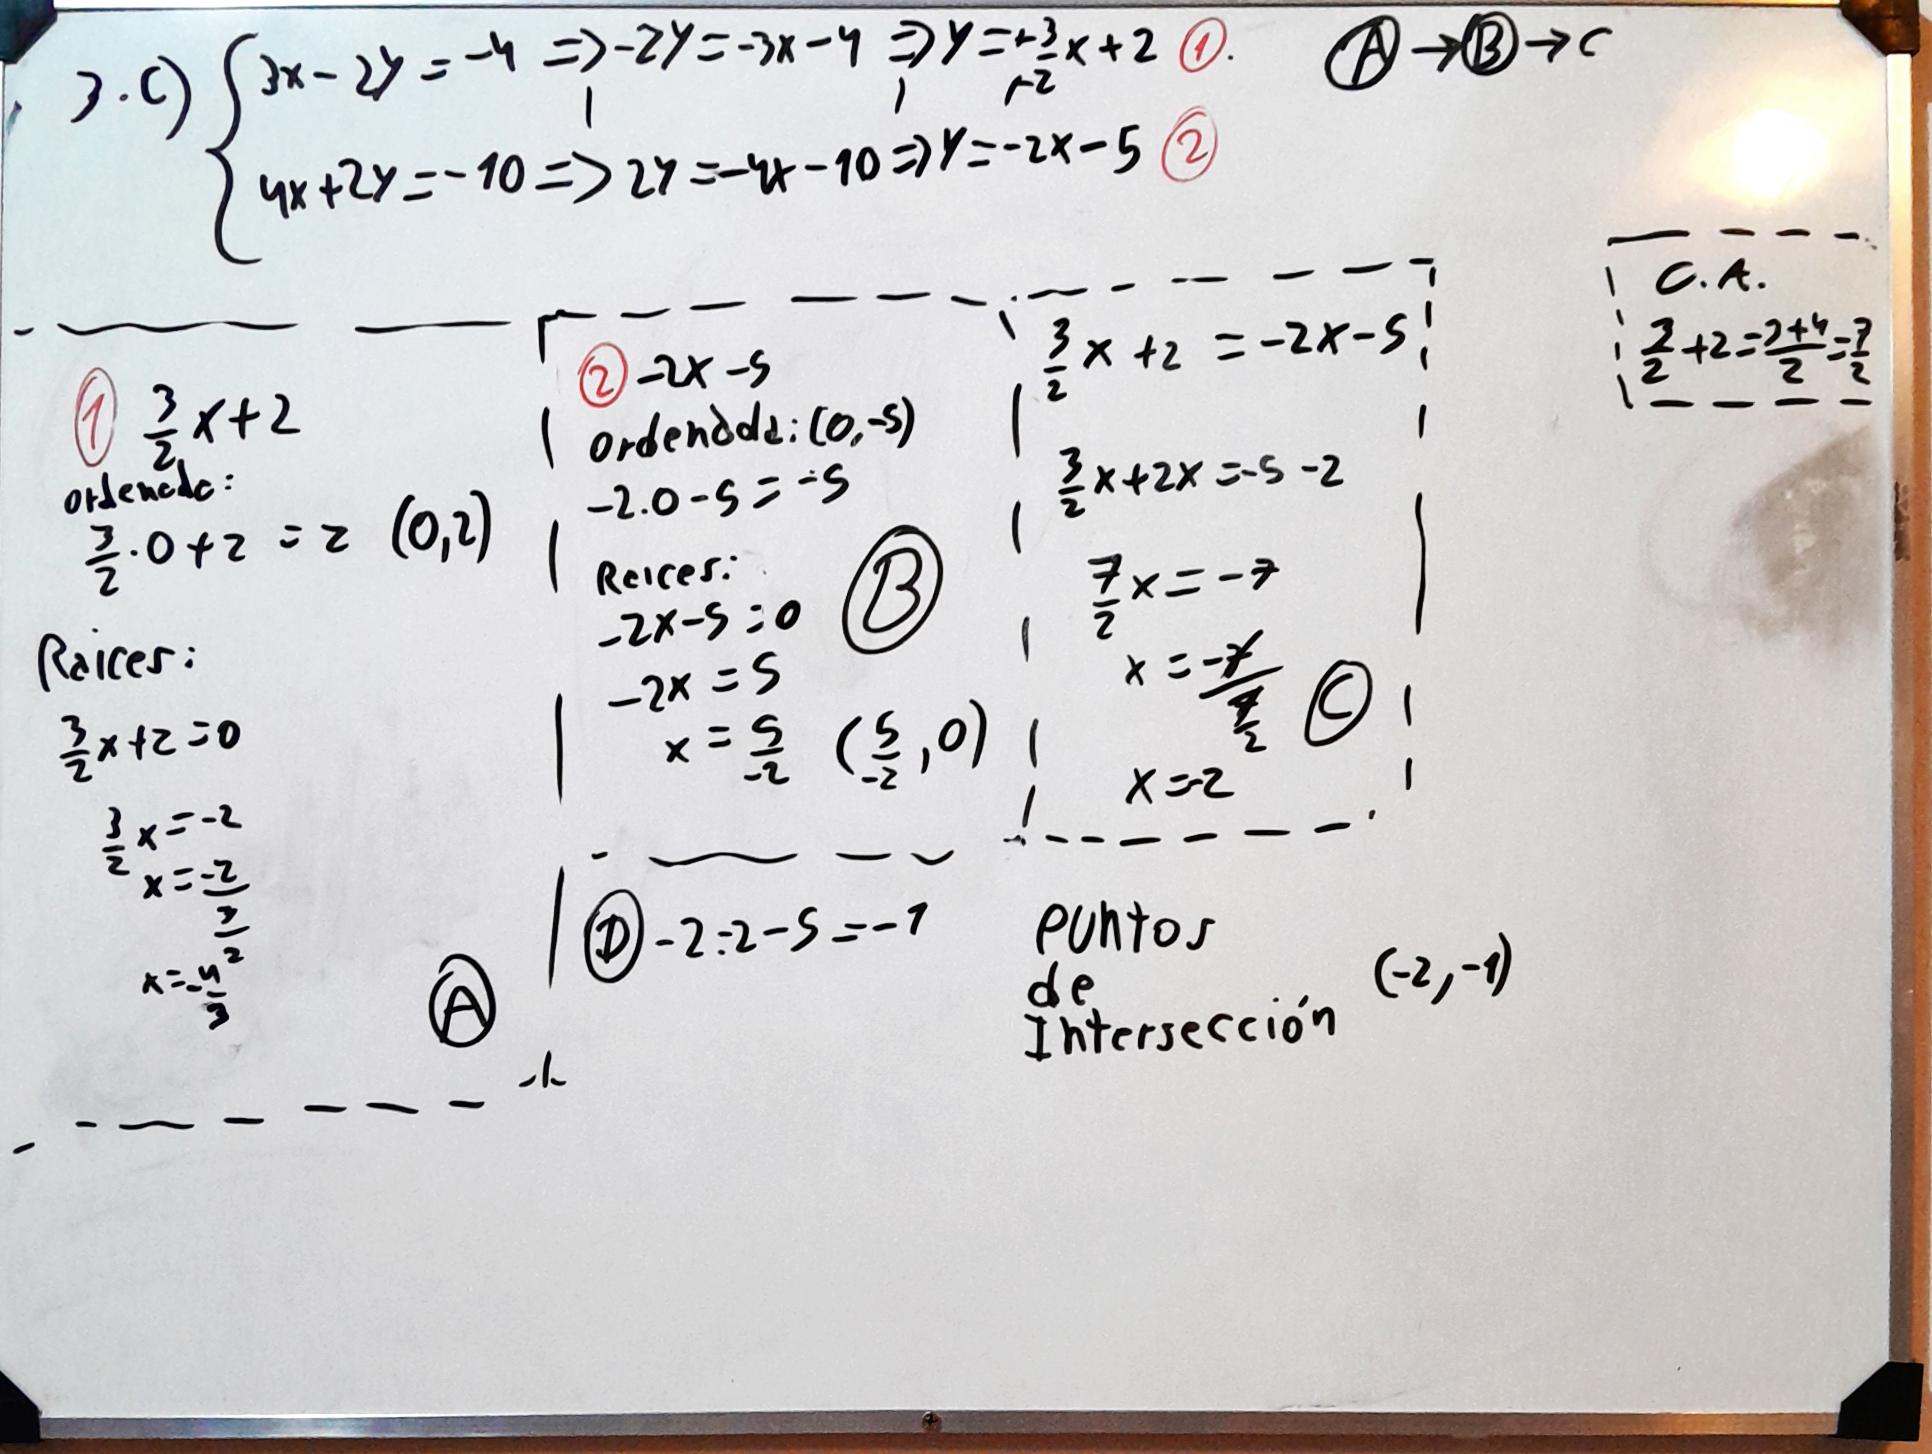 3.C) { 3x - 2y = -4 => -2y = -3x - 4 => y = +3/+2 x + 2 ①. Ⓐ → Ⓑ → C
4x + 2y = -10 => 2y = -4x - 10 => y = -2x - 5 ②
① 3/2 x + 2
ordenada:
3/2 . 0 + 2 = 2 (0,2)
Raices:
3/2 x + 2 = 0
3/2 x = -2
x = -2/(3/2)
x = -4/3
Ⓐ
② -2x - 5
ordenada: (0,-5)
-2.0 - 5 = -5
Raices:
-2x - 5 = 0
-2x = 5
x = 5/-2 (5/-2, 0)
Ⓑ
3/2 x + 2 = -2x - 5
3/2 x + 2x = -5 - 2
7/2 x = -7
x = -7/(7/2)
x = -2
Ⓒ
C.A.
3/2 + 2 = 3+4/2 = 7/2
Ⓓ -2.-2 - 5 = -1
puntos
de
Intersección (-2,-1)